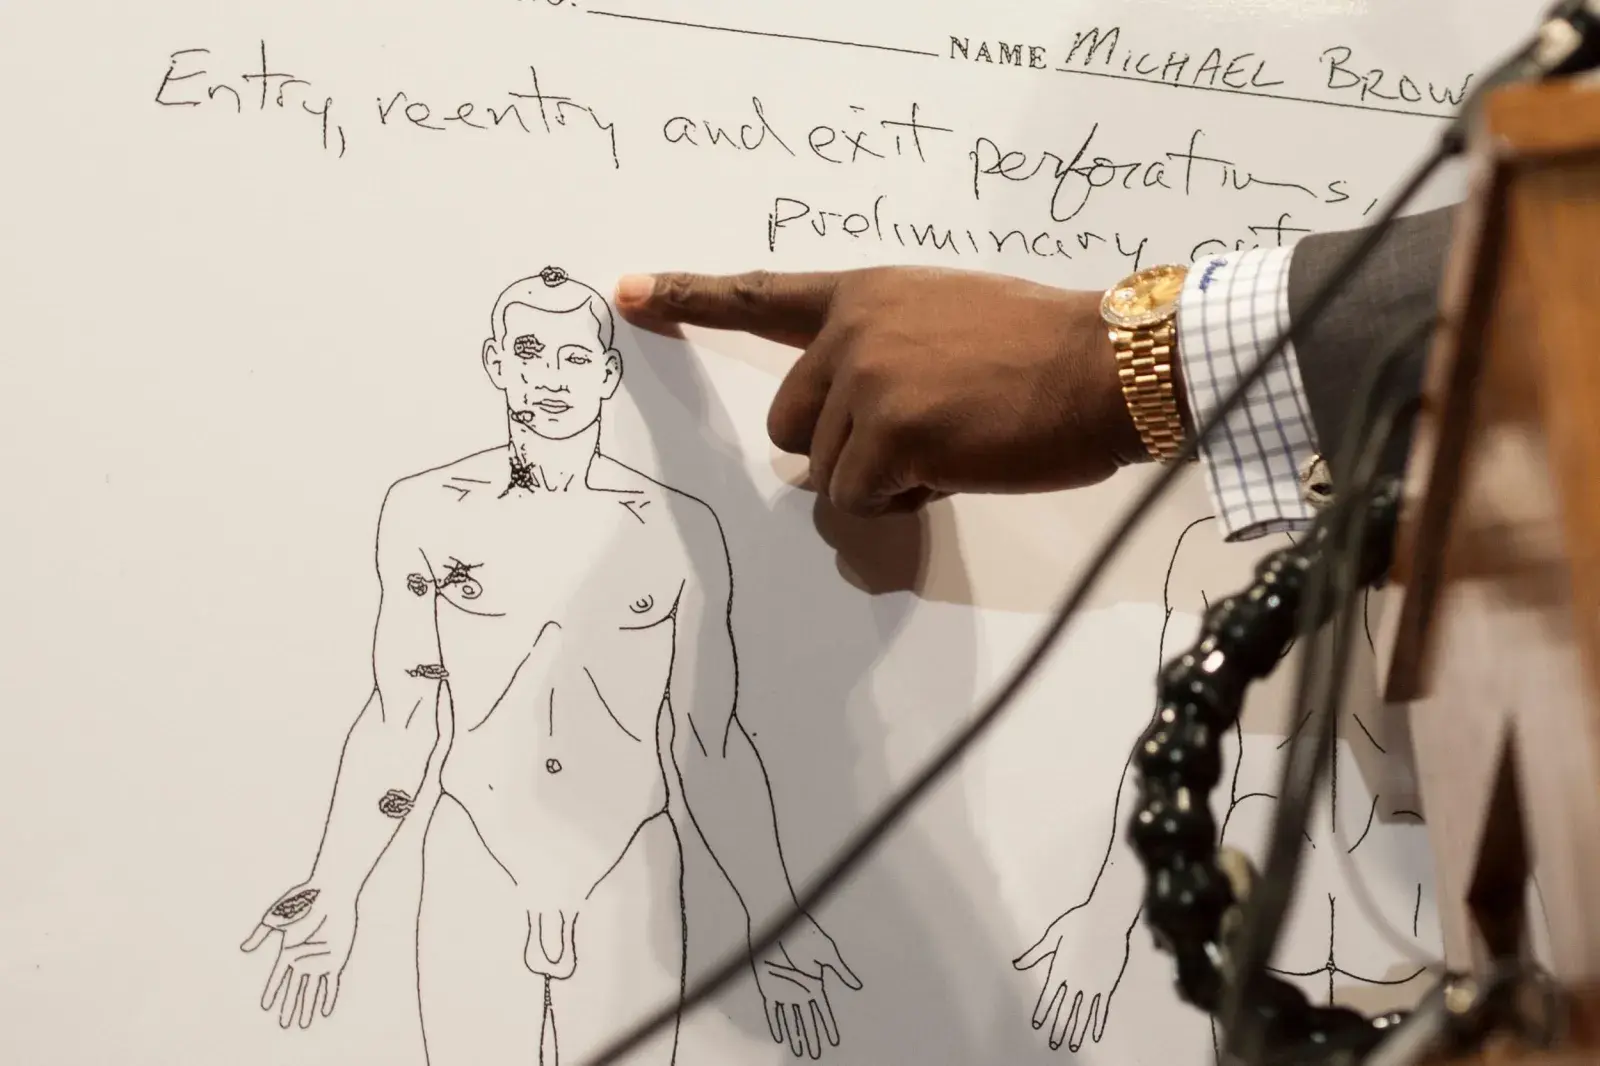 NAME MICHAEL BROW
Entry, reentry and exit perforations,
Preliminary